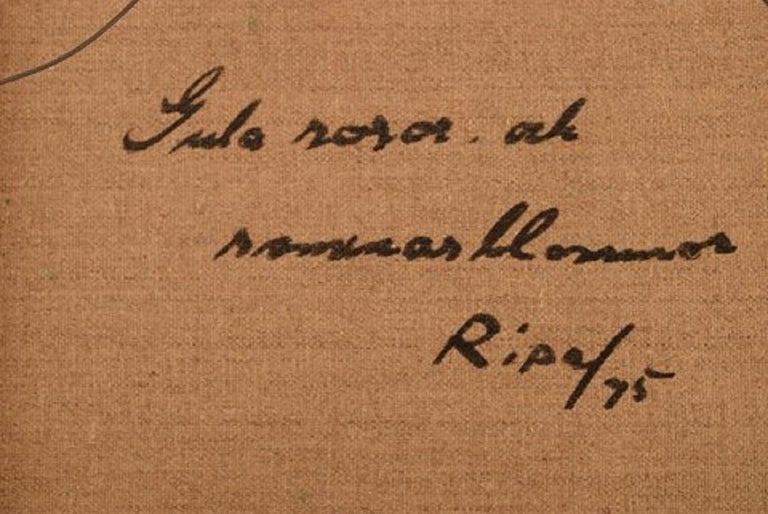 Gula rosor. ah
sommarblommor
Ripa/75